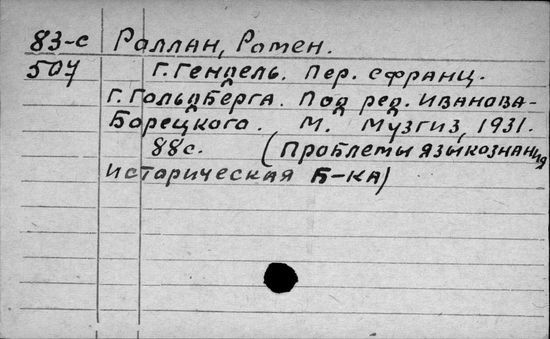 83-с Роллан, Ромен.
507 Г. Гендель. Пер. с франц.
Г. Гольдберга. Под ред. Иванова-
Борецкого. М. Музгиз, 1931.
88с. (Проблемы языкознания
историческая Б-ка)